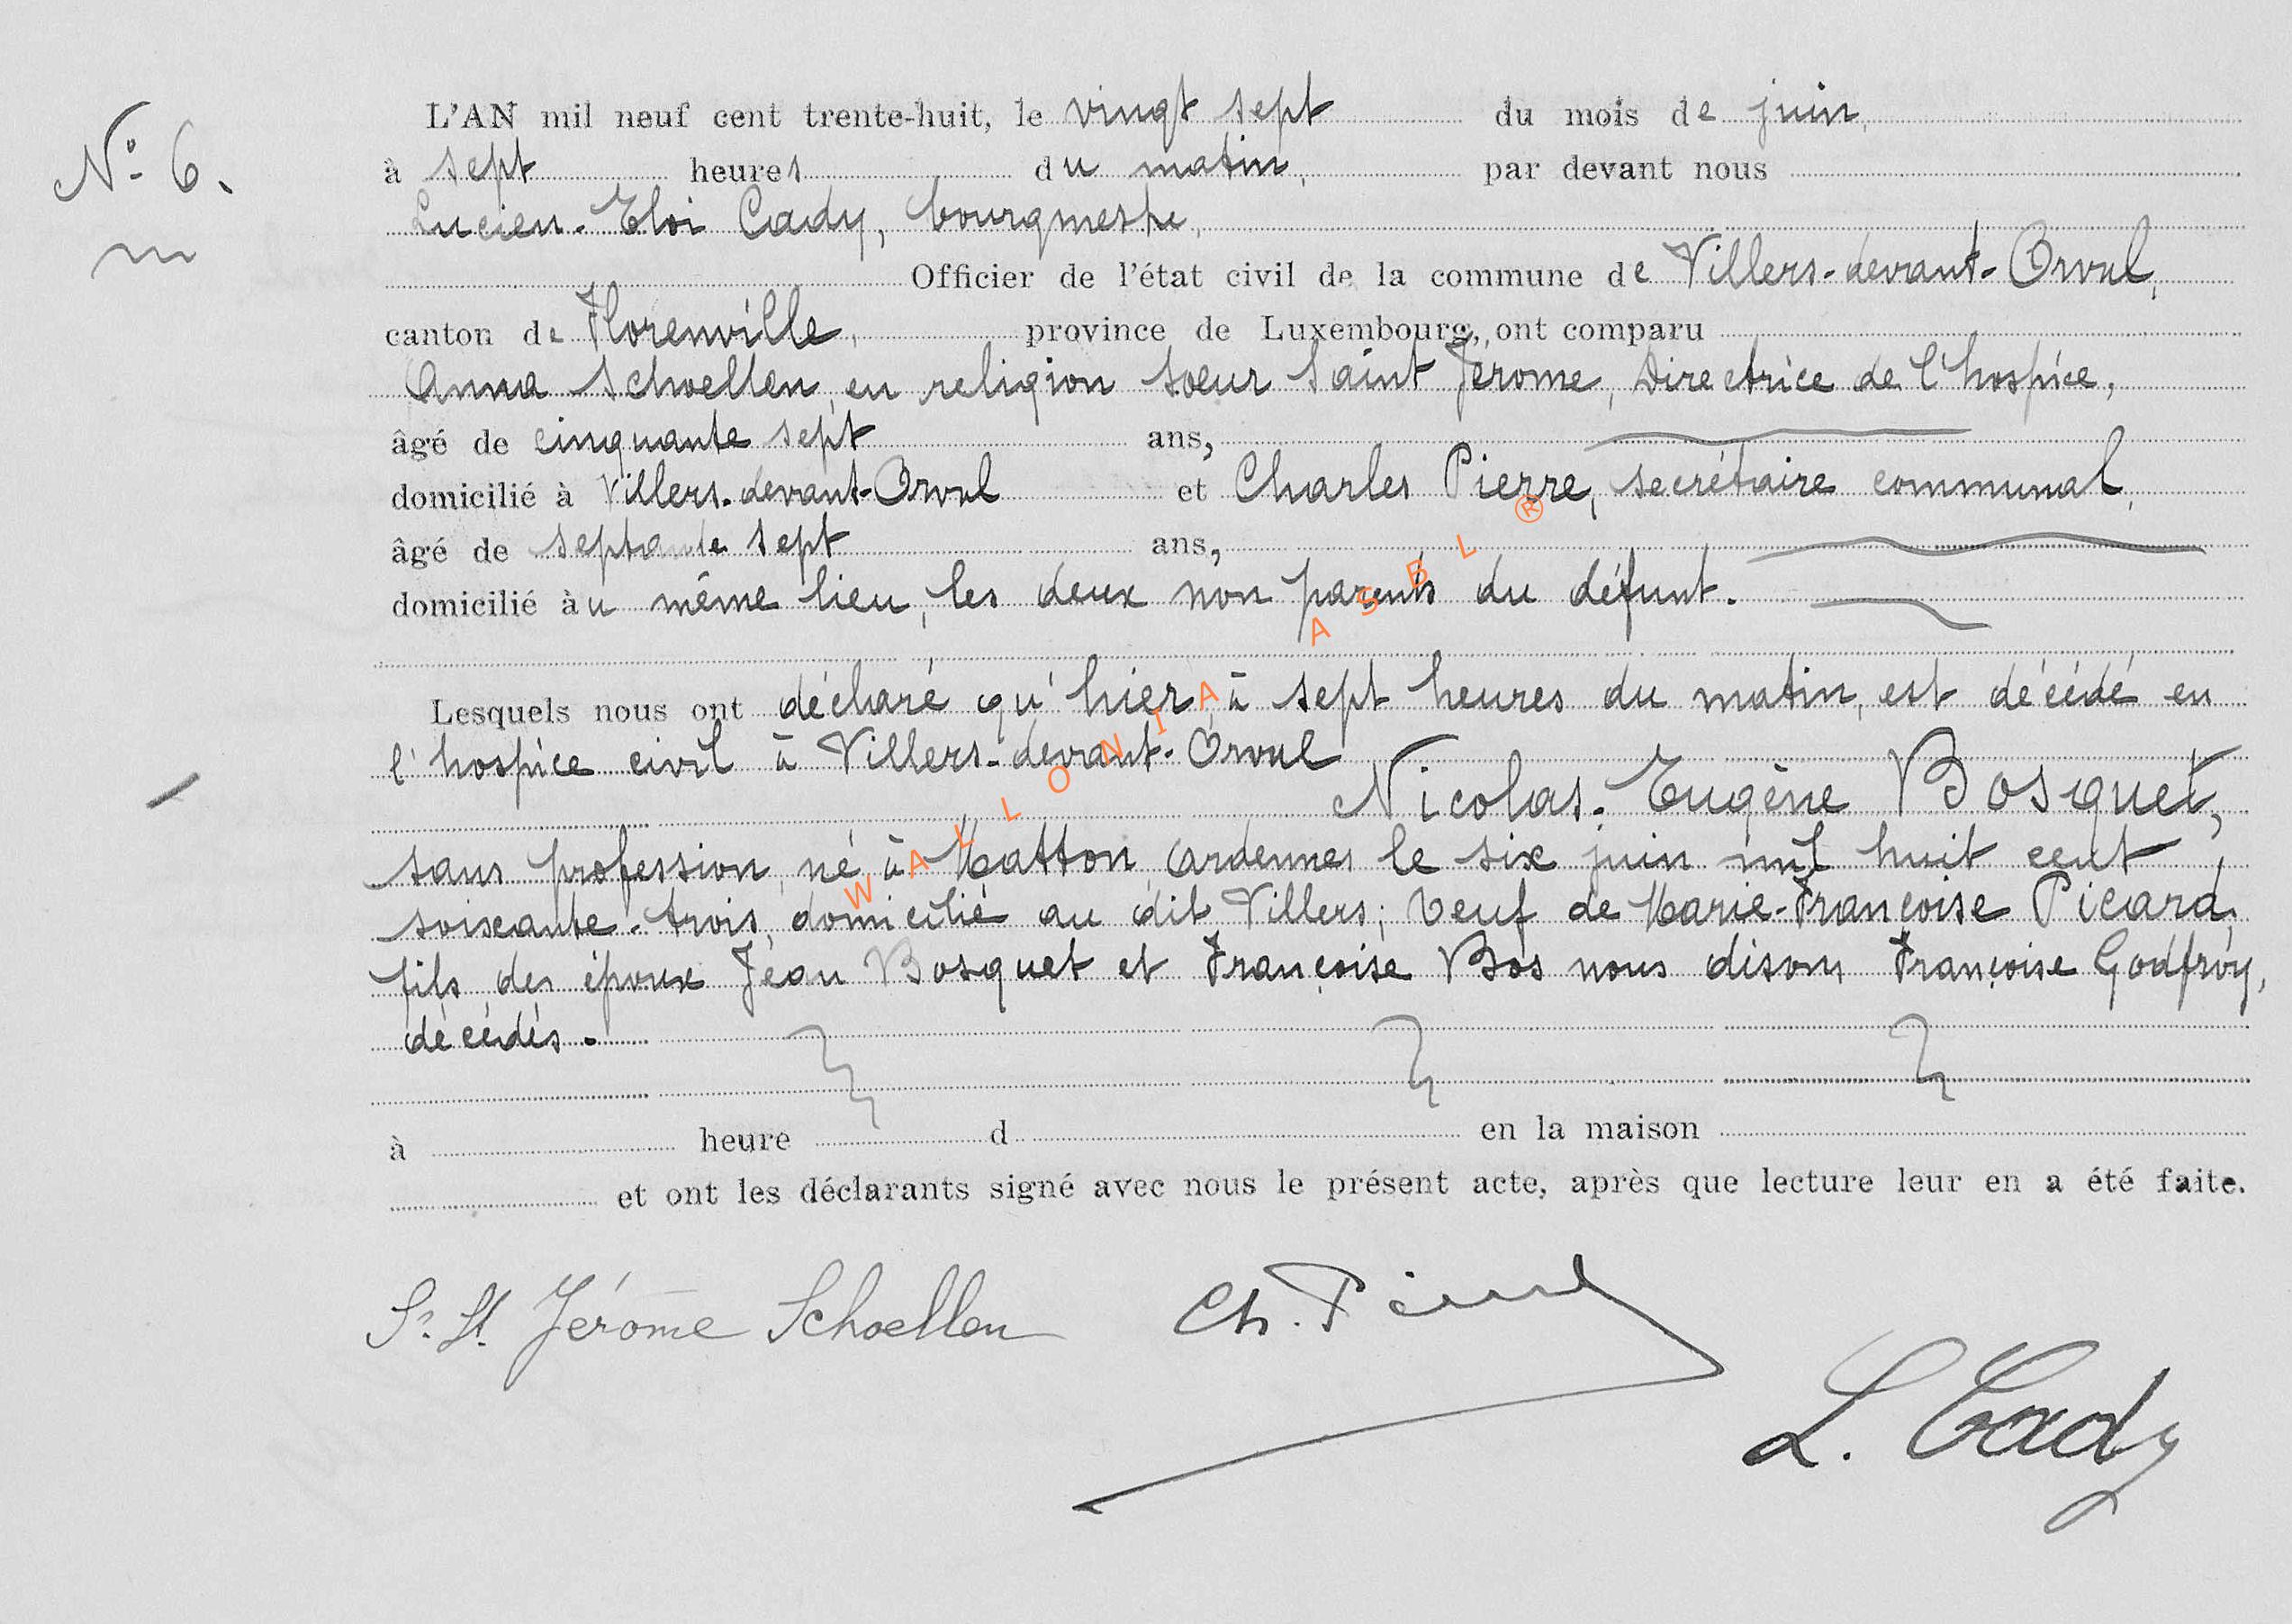 N° 6.
L'AN mil neuf cent trente-huit, le vingt sept du mois de juin,
à sept heures du matin, par devant nous
Lucien-Eloi Cady, bourgmestre,
Officier de l'état civil de la commune de Villers-devant-Orval,
canton de Florenville, province de Luxembourg, ont comparu
Anna Schoellen, en religion soeur Saint Jérome, Directrice de l'hospice,
âgé de cinquante sept ans,
domicilié à Villers-devant-Orval et Charles Pierre, secrétaire communal,
âgé de septante sept ans,
domicilié au même lieu, les deux non parents du défunt.
Lesquels nous ont déclaré qu'hier, à sept heures du matin, est décédé en
l'hospice civil à Villers-devant-Orval
Nicolas-Eugène Bosquet,
sans profession, né à Matton, Ardennes le six juin mil huit cent
soixante-trois, domicilié au dit Villers; veuf de Marie-Françoise Picard,
fils des époux Jean Bosquet et Françoise Bos nous disons Françoise Godfroy,
décédés.
à heure d en la maison
et ont les déclarants signé avec nous le présent acte, après que lecture leur en a été faite.
Sr. St. Jérome Schoellen Ch. Pierre
L. Cady
WALLONIA ASBL ®